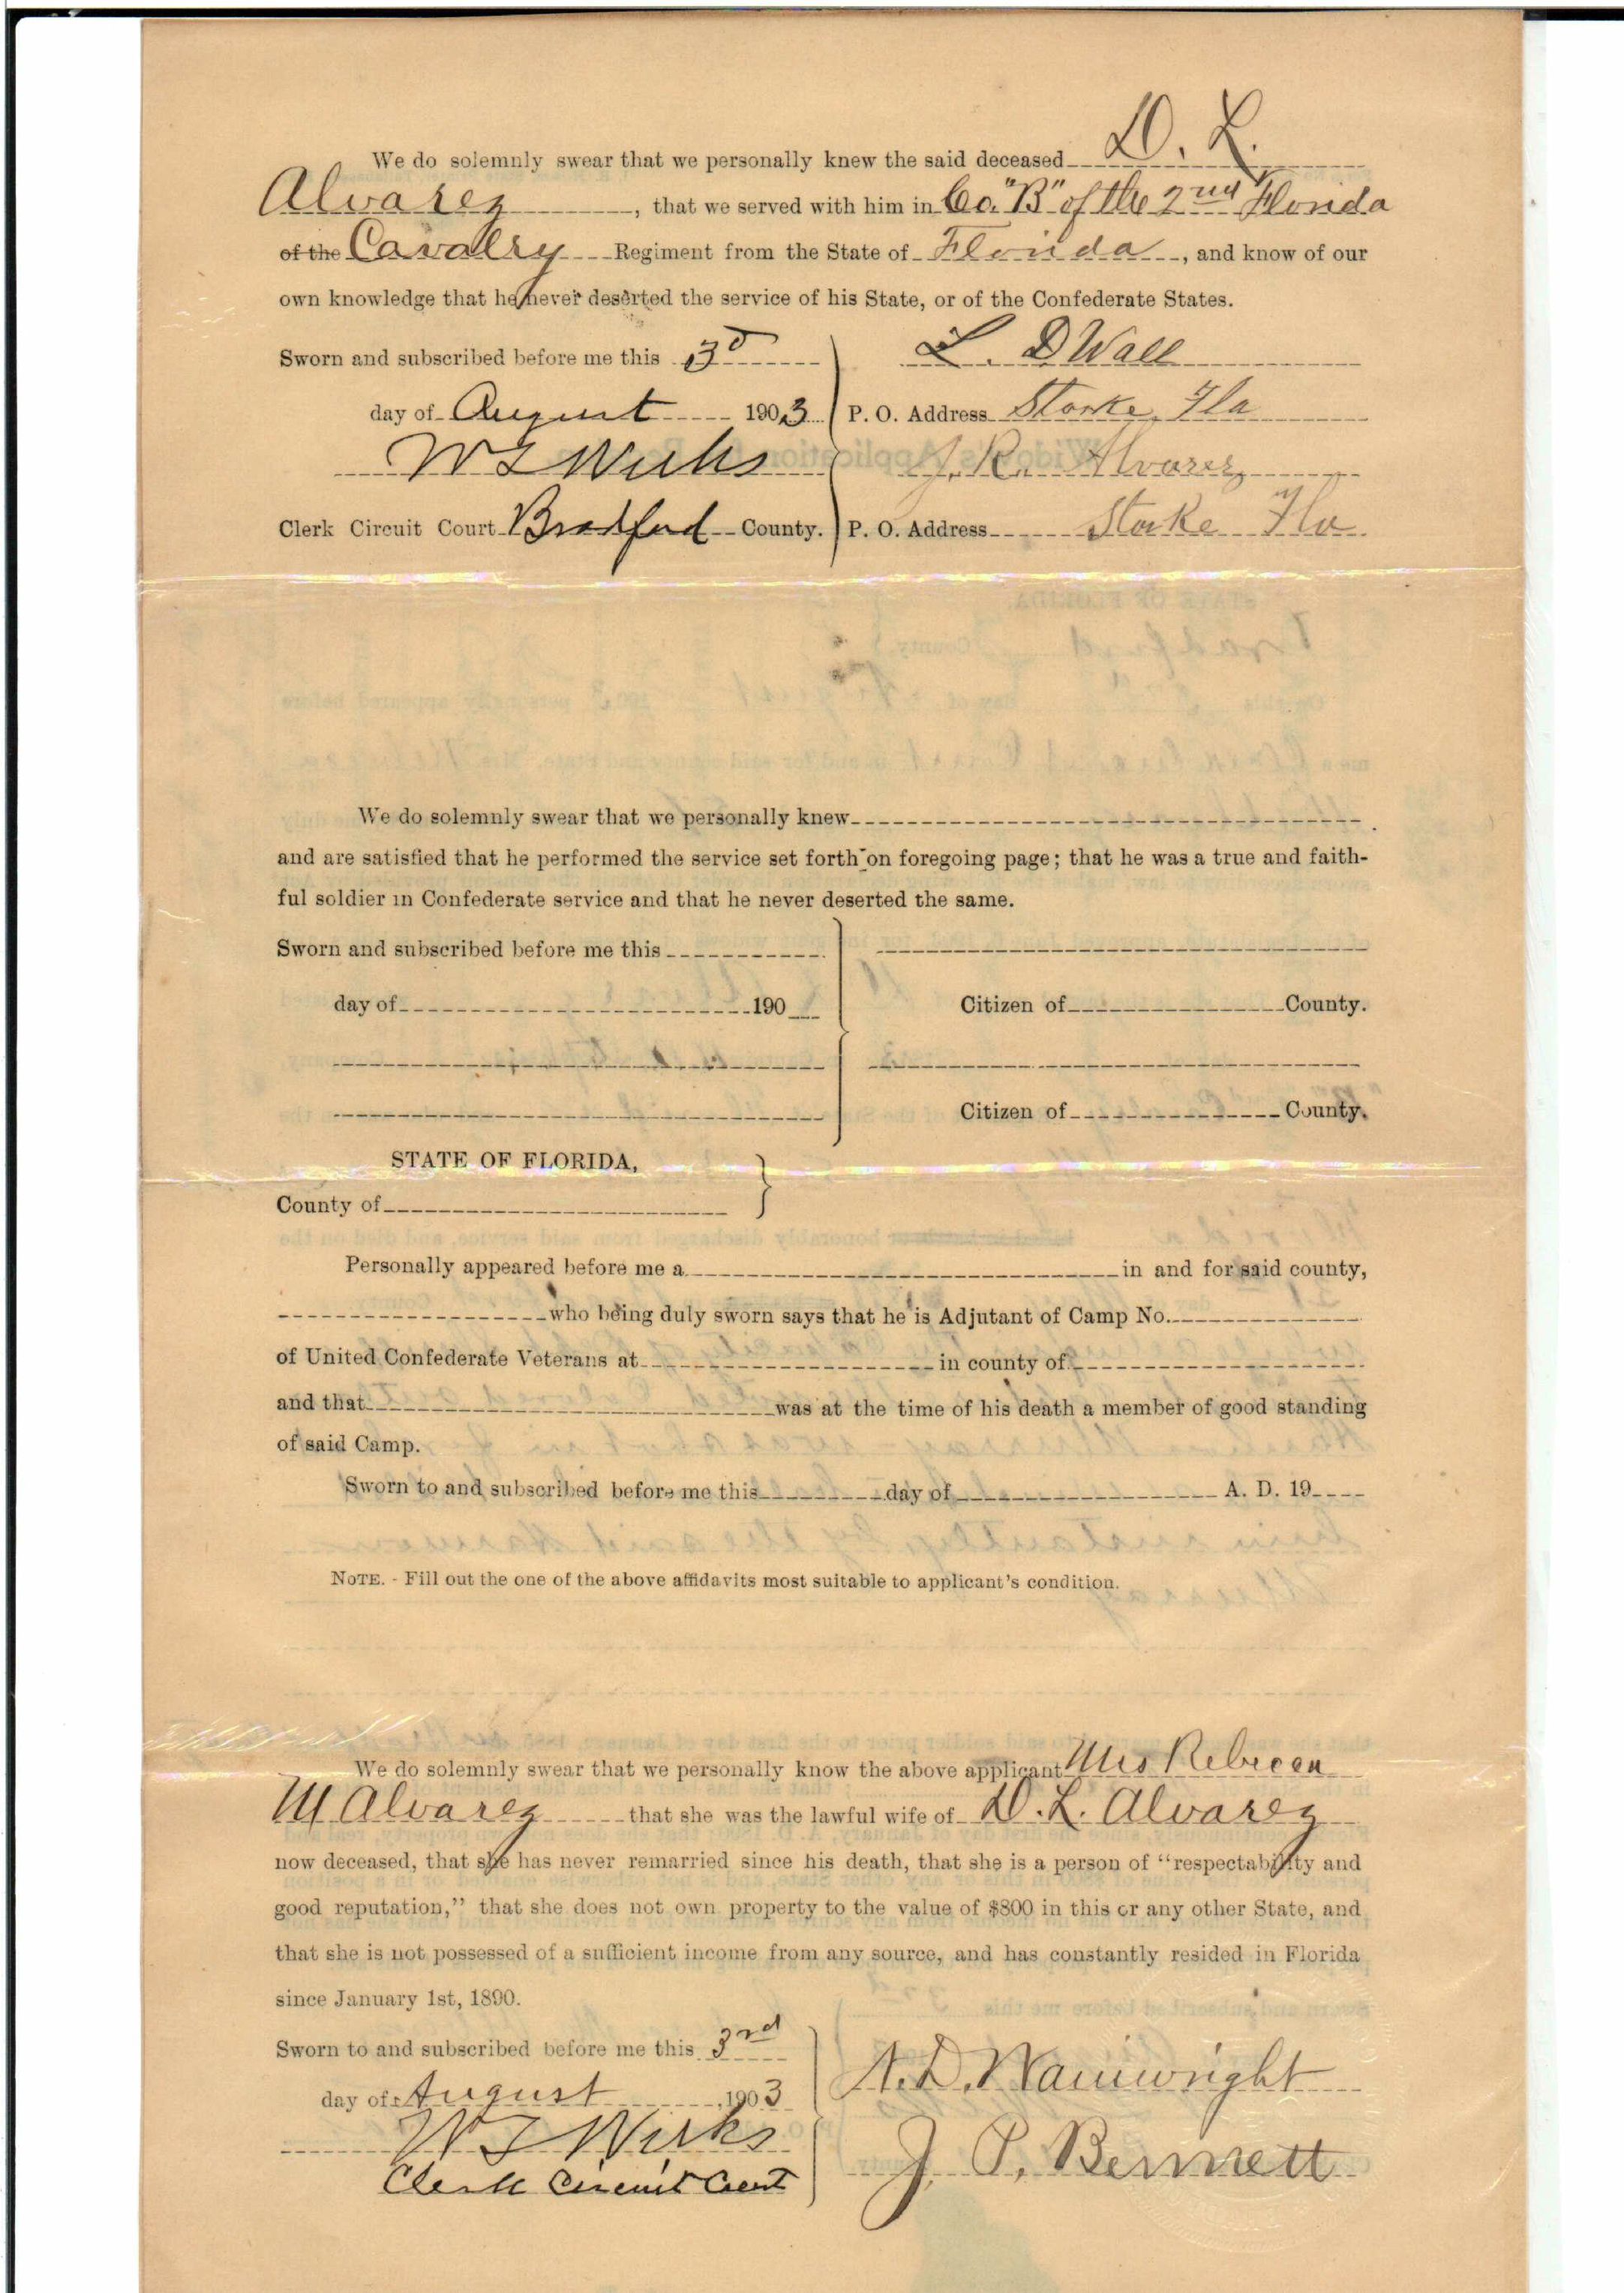 We do solemnly swear that we personally knew the said deceased D. L.
Alvarez, that we served with him in Co. "B" of the 2nd Florida
of the Cavalry Regiment from the State of Florida, and know of our
own knowledge that he never deserted the service of his State, or of the Confederate States.
Sworn and subscribed before me this 3d
L. D Wall
day of August 1903
P. O. Address Starke, Fla
W Weeks
J. R. Alvarez
Clerk Circuit Court Bradford County.
P. O. Address Starke Fla
We do solemnly swear that we personally knew
and are satisfied that he performed the service set forth on foregoing page; that he was a true and faith-
ful soldier in Confederate service and that he never deserted the same.
Sworn and subscribed before me this
day of 190
Citizen of County.
Citizen of County.
STATE OF FLORIDA,
County of
Personally appeared before me a in and for said county,
who being duly sworn says that he is Adjutant of Camp No.
of United Confederate Veterans at in county of
and that was at the time of his death a member of good standing
of said Camp.
Sworn to and subscribed before me this day of A. D. 19
NOTE. - Fill out the one of the above affidavits most suitable to applicant's condition.
We do solemnly swear that we personally know the above applicant Mrs Rebecca
M Alvarez that she was the lawful wife of D. L. Alvarez
now deceased, that she has never remarried since his death, that she is a person of "respectability and
good reputation," that she does not own property to the value of $800 in this or any other State, and
that she is not possessed of a sufficient income from any source, and has constantly resided in Florida
since January 1st, 1890.
Sworn to and subscribed before me this 3rd
day of August 1903
N. D. Wainwright
W Weeks
J. P. Bennett
Clerk Circuit Court